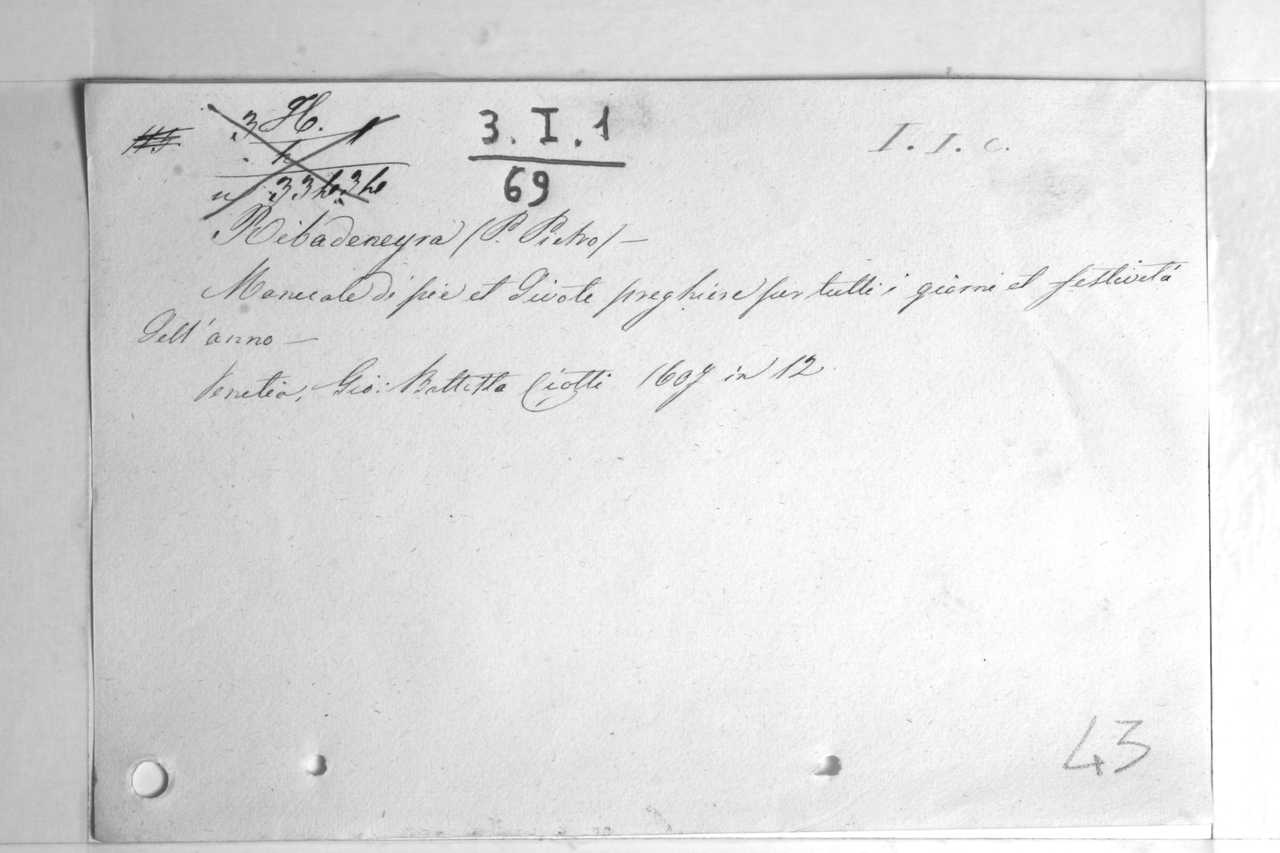 3 H. 1
3. I. 1
I. I. c.
69
Ribadeneyra (P. Pietro) —
Manuale di pie et divote preghiere per tutti i giorni et festività
dell'anno —
Venetia, Gio: Battista Ciotti 1607 in 12.
43